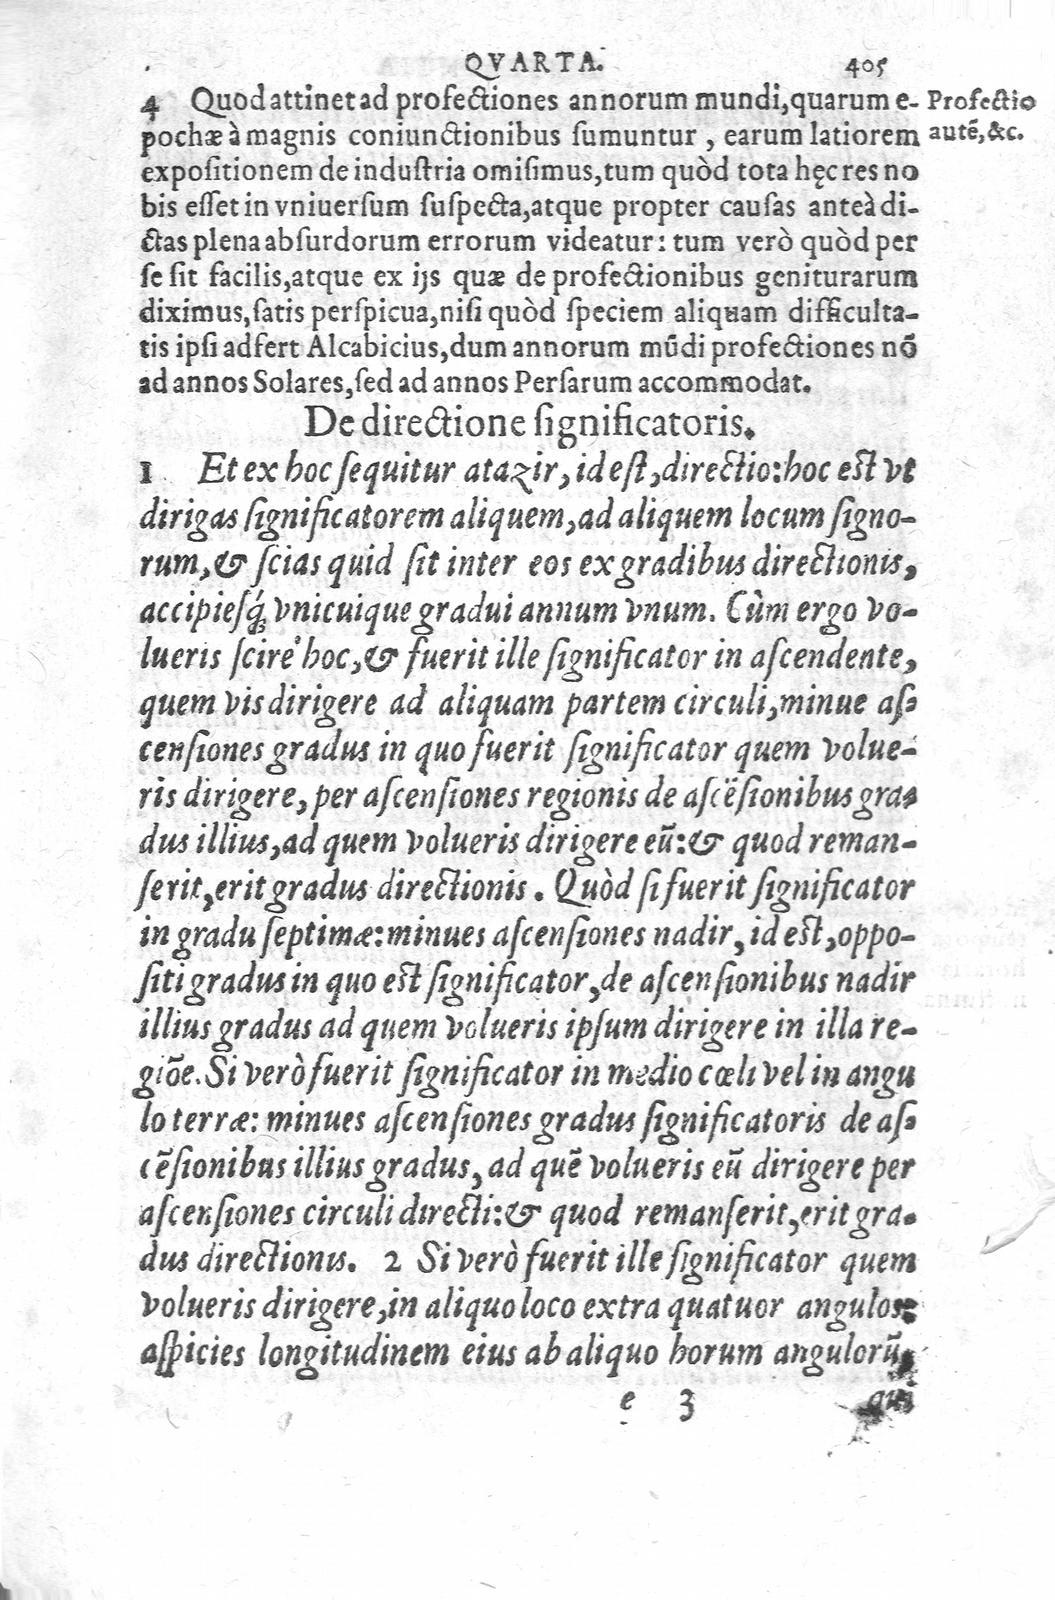 QVARTA. 405
4 Quod attinet ad profectiones annorum mundi, quarum e- Profectio
pochæ à magnis coniunctionibus ſumuntur, earum latiorem autẽ, &c.
expoſitionem de induſtria omiſimus, tum quòd tota hęc res no
bis eſſet in vniuerſum ſuſpecta, atque propter cauſas anteà di-
ctas plena abſurdorum errorum videatur: tum verò quòd per
ſe ſit facilis, atque ex ijs quæ de profectionibus geniturarum
diximus, ſatis perſpicua, niſi quòd ſpeciem aliquam difficulta-
tis ipſi adfert Alcabicius, dum annorum mũdi profectiones nõ
ad annos Solares, ſed ad annos Perſarum accommodat.
De directione ſignificatoris.
1 Et ex hoc ſequitur atazir, id eſt, directio: hoc eſt vt
dirigas ſignificatorem aliquem, ad aliquem locum ſigno-
rum, & ſcias quid ſit inter eos ex gradibus directionis,
accipieſq́; vnicuique gradui annum vnum. Cùm ergo vo-
lueris ſcire hoc, & fuerit ille ſignificator in aſcendente,
quem vis dirigere ad aliquam partem circuli, minue aſ-
cenſiones gradus in quo fuerit ſignificator quem volue-
ris dirigere, per aſcenſiones regionis de aſcẽſionibus gra-
dus illius, ad quem volueris dirigere eũ: & quod reman-
ſerit, erit gradus directionis. Quòd ſi fuerit ſignificator
in gradu ſeptimæ: minues aſcenſiones nadir, id eſt, oppo-
ſiti gradus in quo eſt ſignificator, de aſcenſionibus nadir
illius gradus ad quem volueris ipſum dirigere in illa re-
giõe. Si verò fuerit ſignificator in medio cœli vel in angu
lo terræ: minues aſcenſiones gradus ſignificatoris de aſ-
cẽſionibus illius gradus, ad quẽ volueris eũ dirigere per
aſcenſiones circuli directi: & quod remanſerit, erit gra-
dus directionis. 2 Si verò fuerit ille ſignificator quem
volueris dirigere, in aliquo loco extra quatuor angulos:
aſpicies longitudinem eius ab aliquo horum angulorũ,
e 3 qui